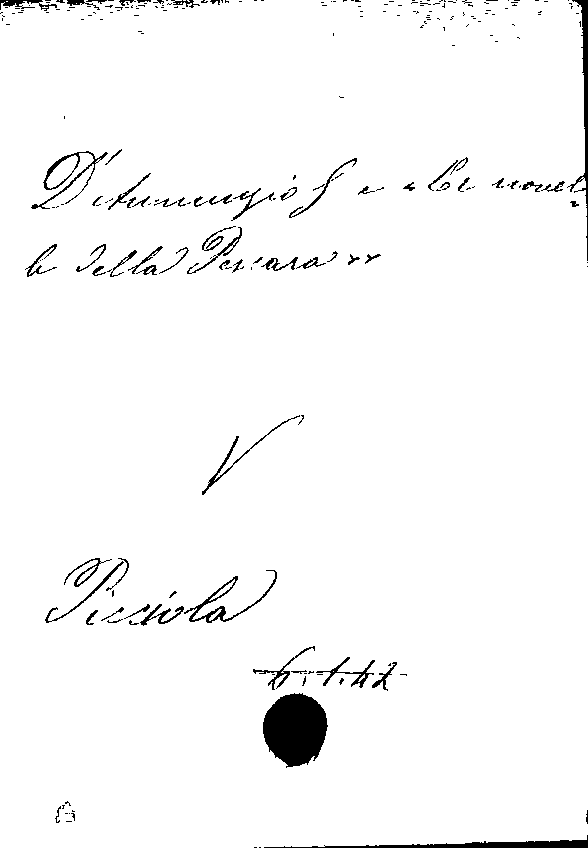 D'Annunzio G e «Le novel-
le della Pescara»
V
Piccola
6.1.42